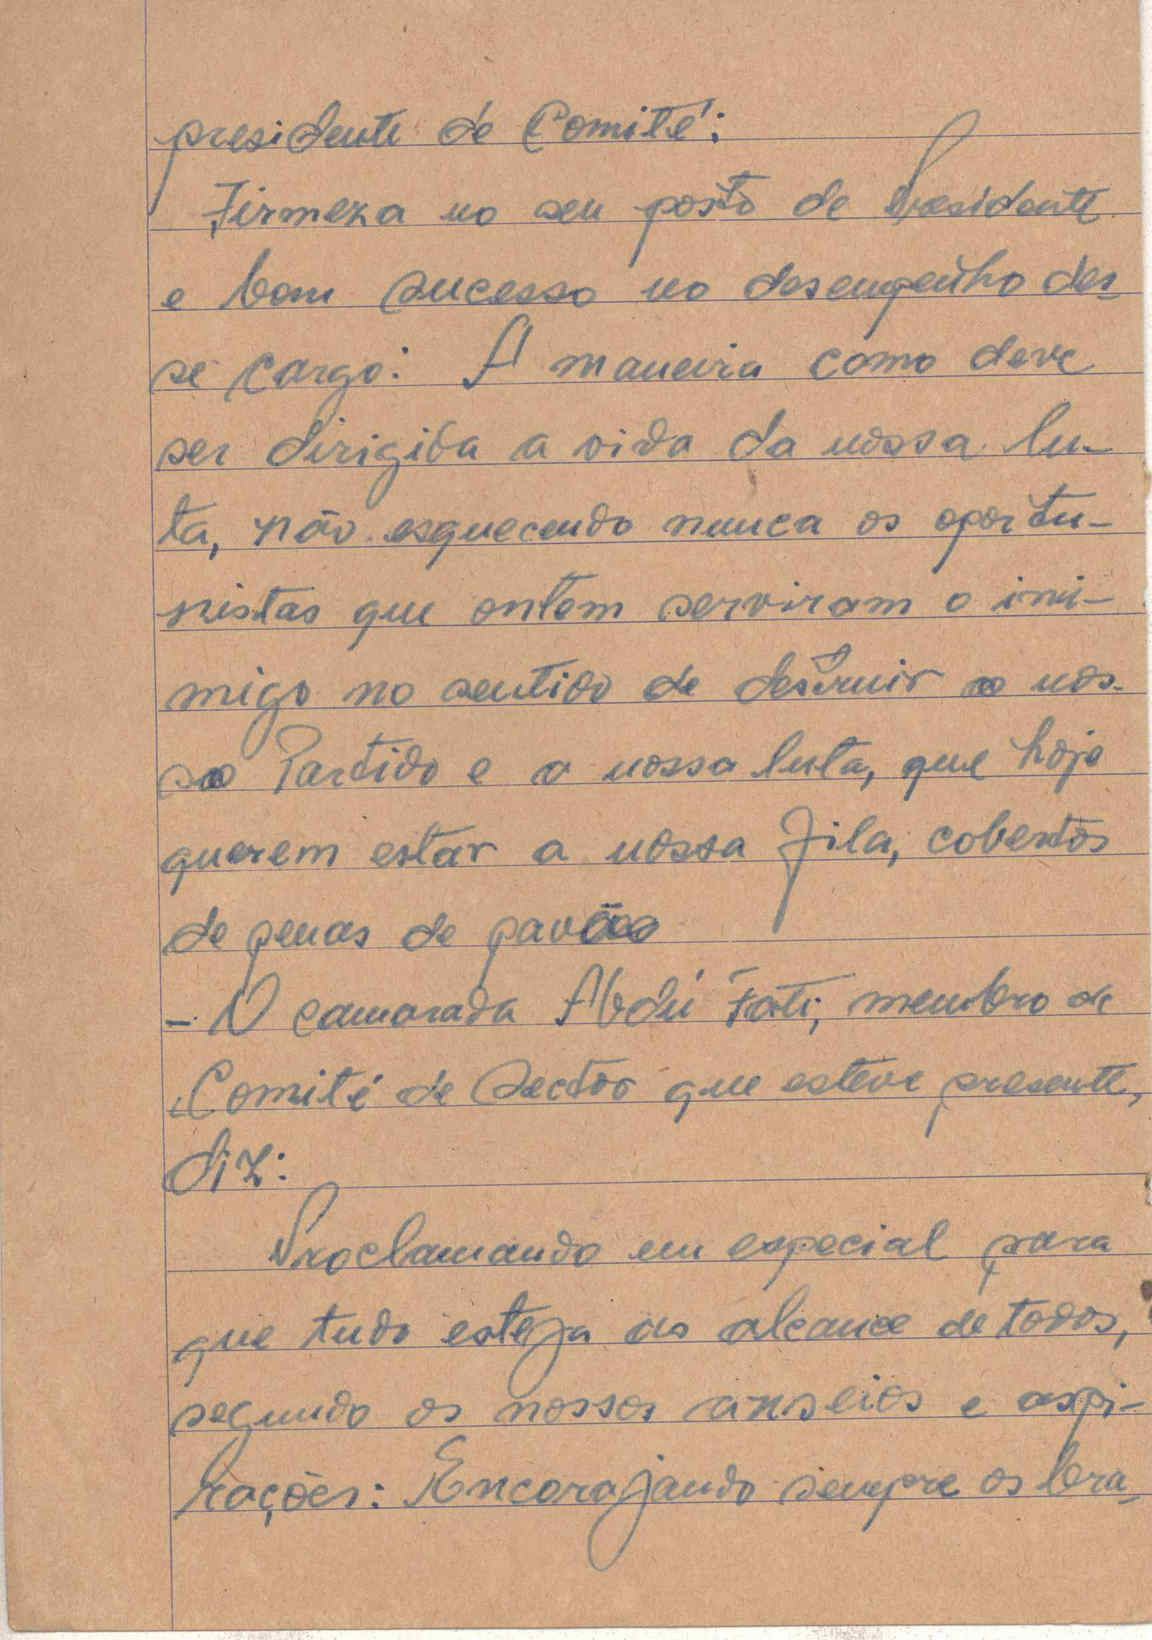 presidente de Comité:
Firmeza no seu posto de Presidente
e bom sucesso no desempenho des-
se cargo: A maneira como deve
ser dirigida a vida da nossa lu-
ta, não esquecendo nunca os oportu-
nistas que ontem serviram o ini-
migo no sentido de destruir o nos-
so Partido e a nossa luta, que hoje
querem estar a nossa fila, cobertos
de penas de pavão
- O camarada Abdú Fati, membro de
Comité de Sector que esteve presente,
diz:
Proclamando em especial para
que tudo esteja ao alcance de todos,
segundo os nossos anseios e aspi-
rações: Encorajando sempre os bra-